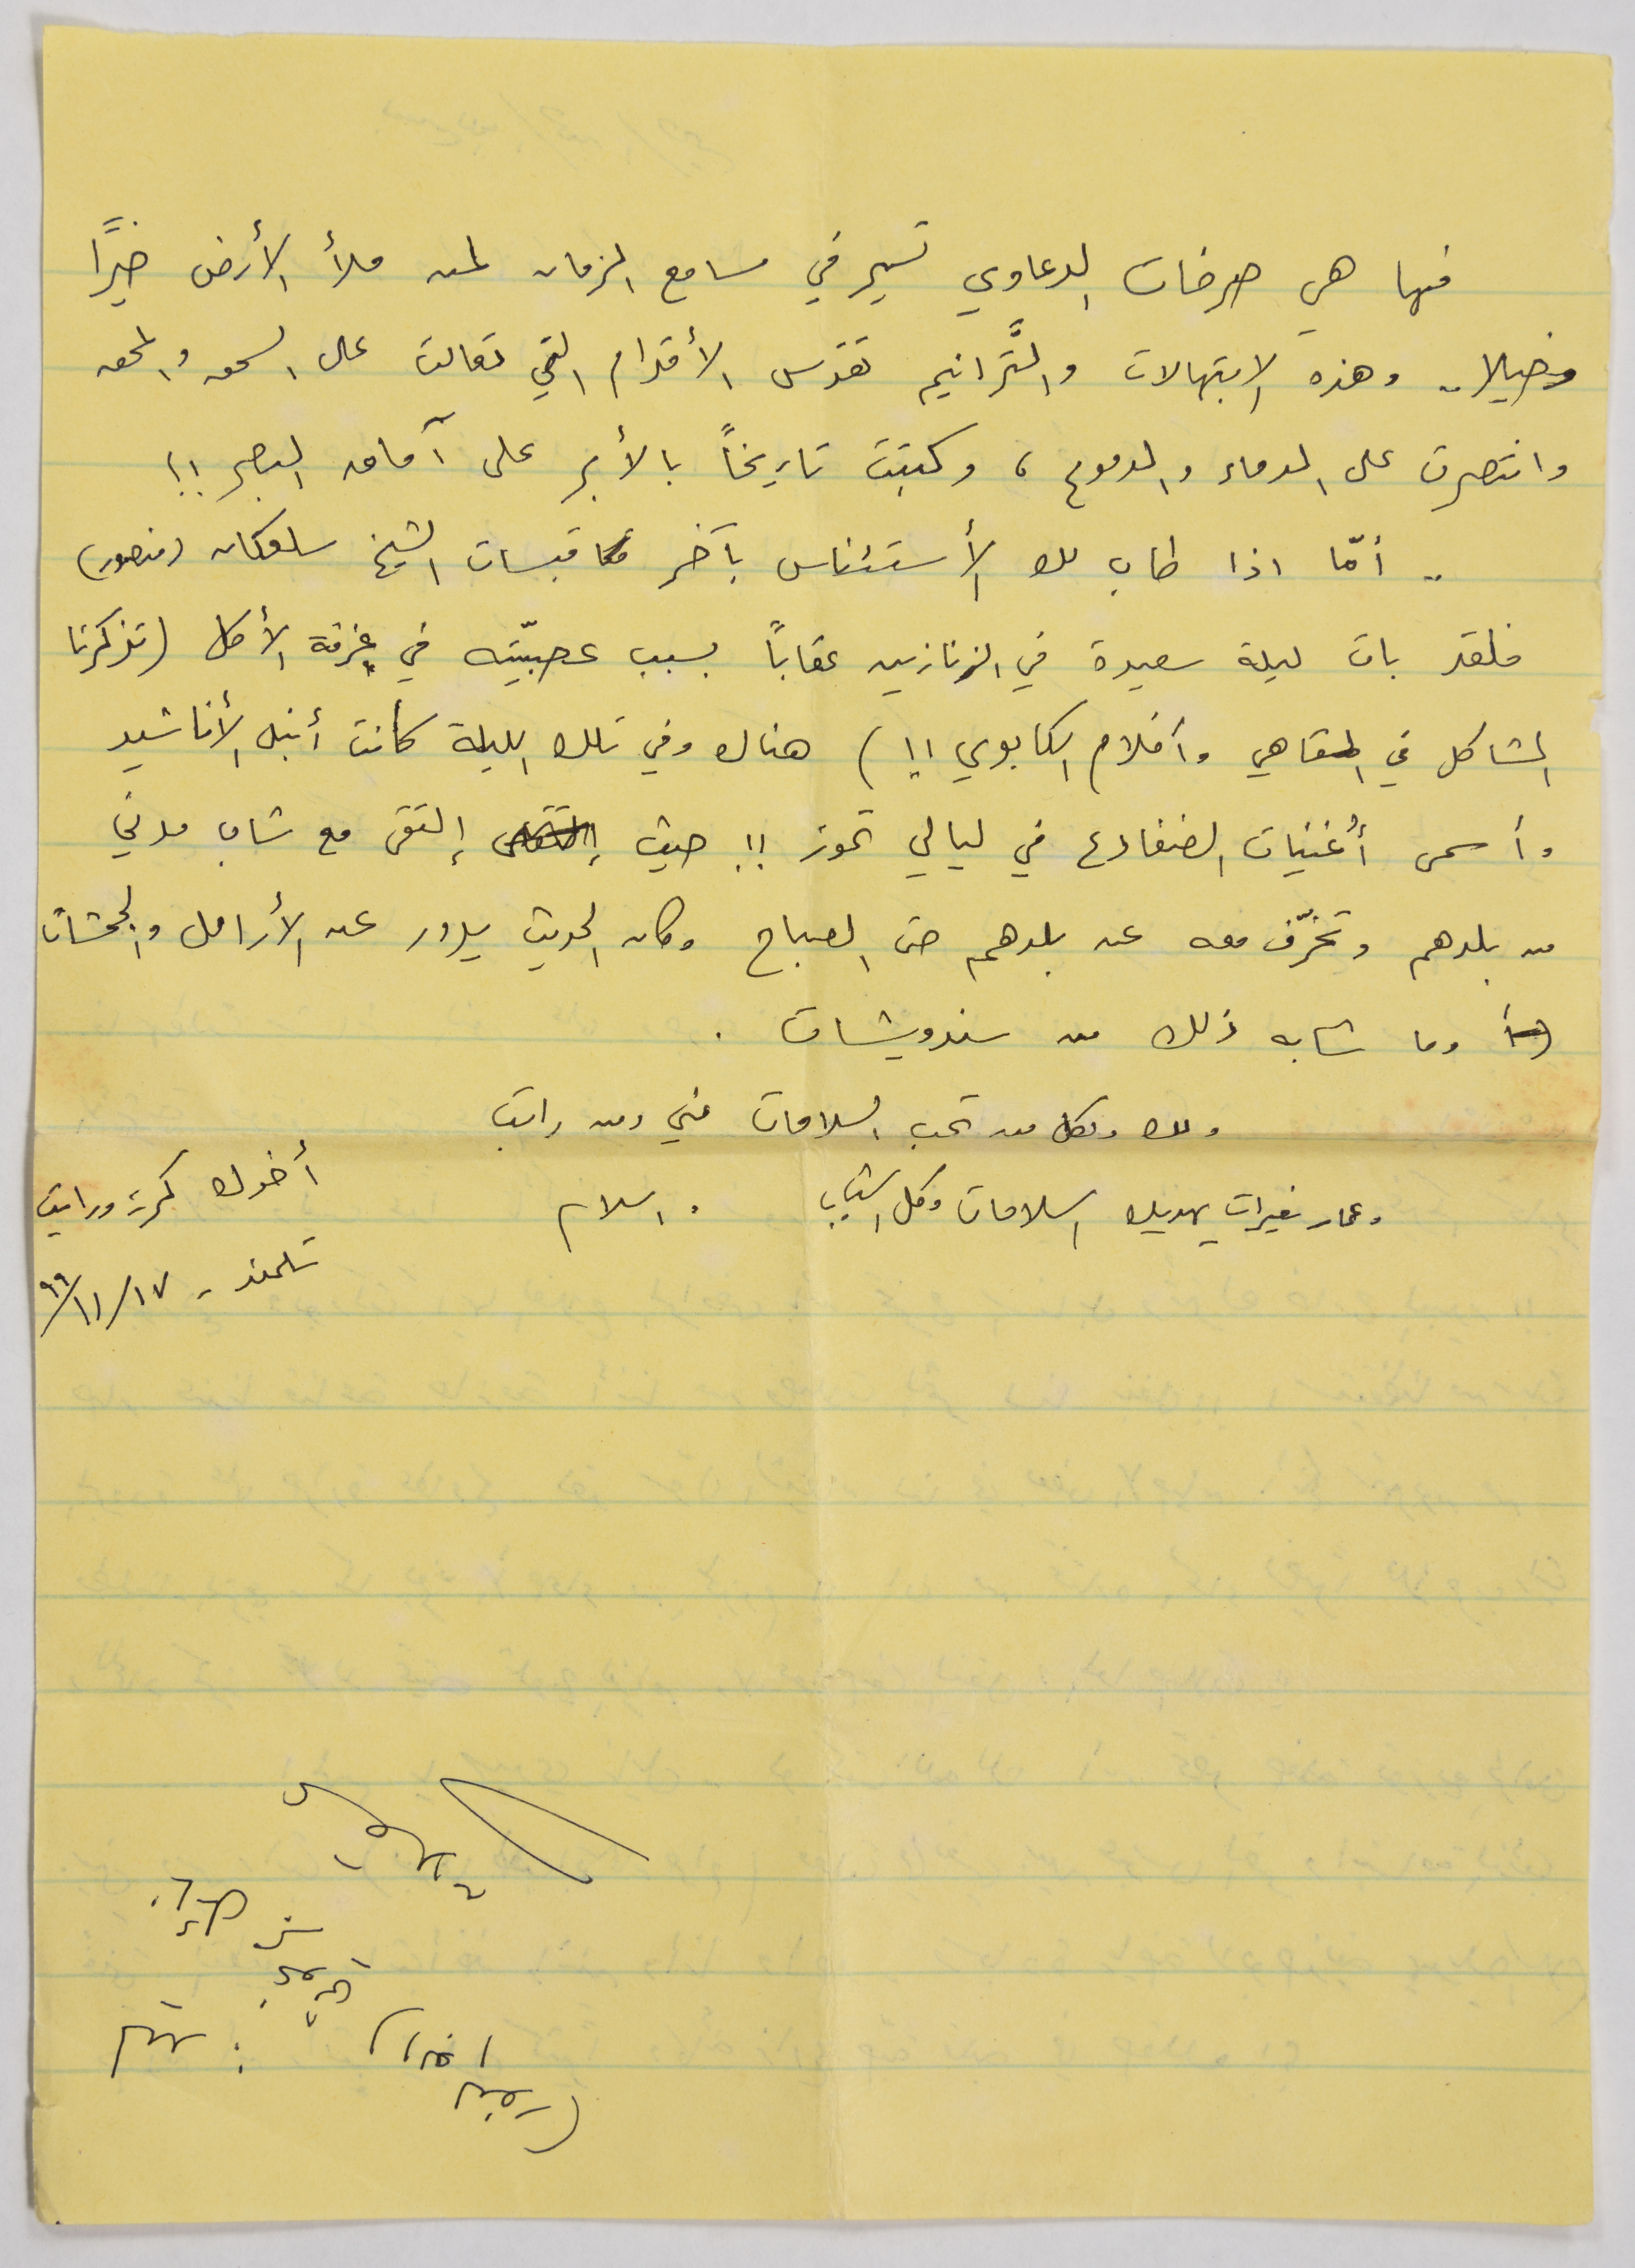 فها هي صرخات الدعاوي تسير في مسامع الزمان لمن ملأ الأرض خيرًا
وخيلا.. وهذه الابتهالات والتَّرانيم تقدس الأقدام التي تعالت على السحق والمحق
وانتصرت على الدماء والدموع، وكتبت تاريخاً بالأبر على آماق البصر !!
.. أمّا اذا طاب لك الأستئناس بآخر مقابسات الشيخ سلوكان (منصور)
فلقد بات ليلة سعيدة في الزنازين عقاباً بسبب عصبيّته في غرفة الأكل (تذكرنا
المشاكل في المقاهي وأفلام الكابوي !!) هناك وفي تلك الليلة كانت أنبل الأناشيد
وأسمى أغنيات الضفادع في ليالي تموز !! حيث إلتقى مع شاب مدني
من بلدهم وتخرّف معه عن بلدهم حتى الصباح وكان الحديث يدور عن الأرامل والجحشات
وما شابه ذلك من سندويشات .
ولك ولكل من تحب السلامات مني ومن راتب
وعمار نغيرات يهديك السلامات وكل الشباب والسلام
أخوك كريم وراتب
تلموند - ١٧/١١/٩٩